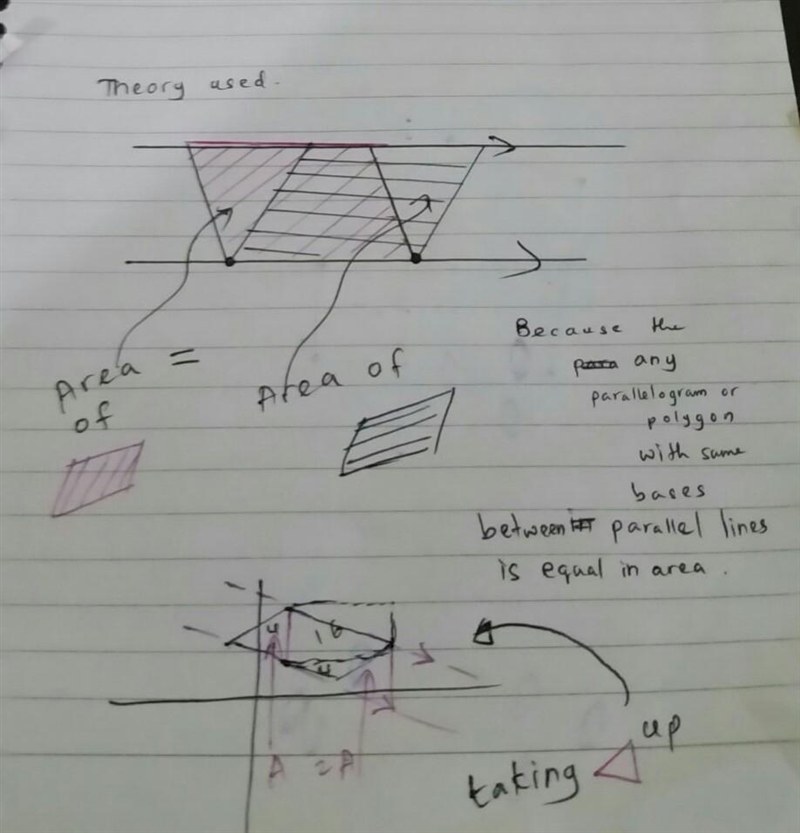 Theory used.
Area = Area of
of
Because the
any
parallelogram or
polygon
with same
bases
between parallel lines
is equal in area.
4
16
4
A = A
taking up